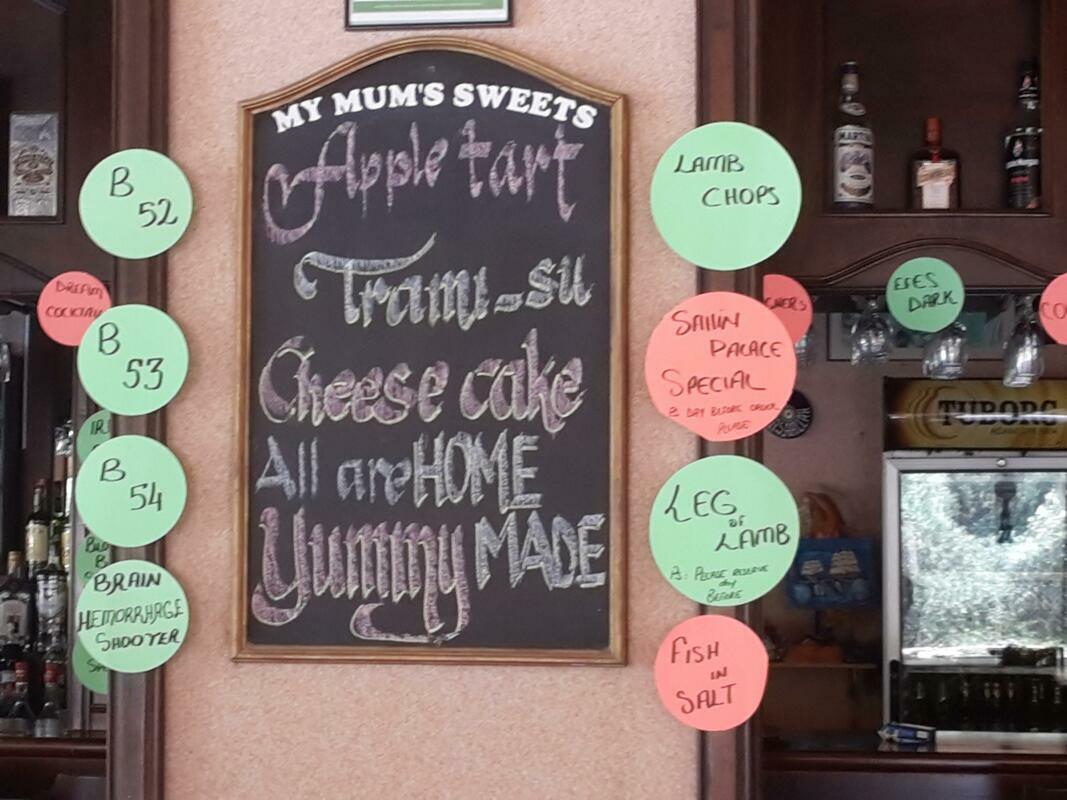 MY MUM'S SWEETS
Apple tart
Tramı-su
Cheese cake
All are HOME
Yummy MADE
B
52
DREAM
COCKTAIL
B
53
B
54
BRAIN
HEMORRHAGE
SHOOTER
LAMB
CHOPS
SAILIN
PALACE
SPECIAL
DAY BEFORE ORDER
PLEASE
LEG
OF
LAMB
Ps: PLEASE RESERVE
day
BEFORE
FISH
IN
SALT
EFES
DARK
TUBORG
MARTINI